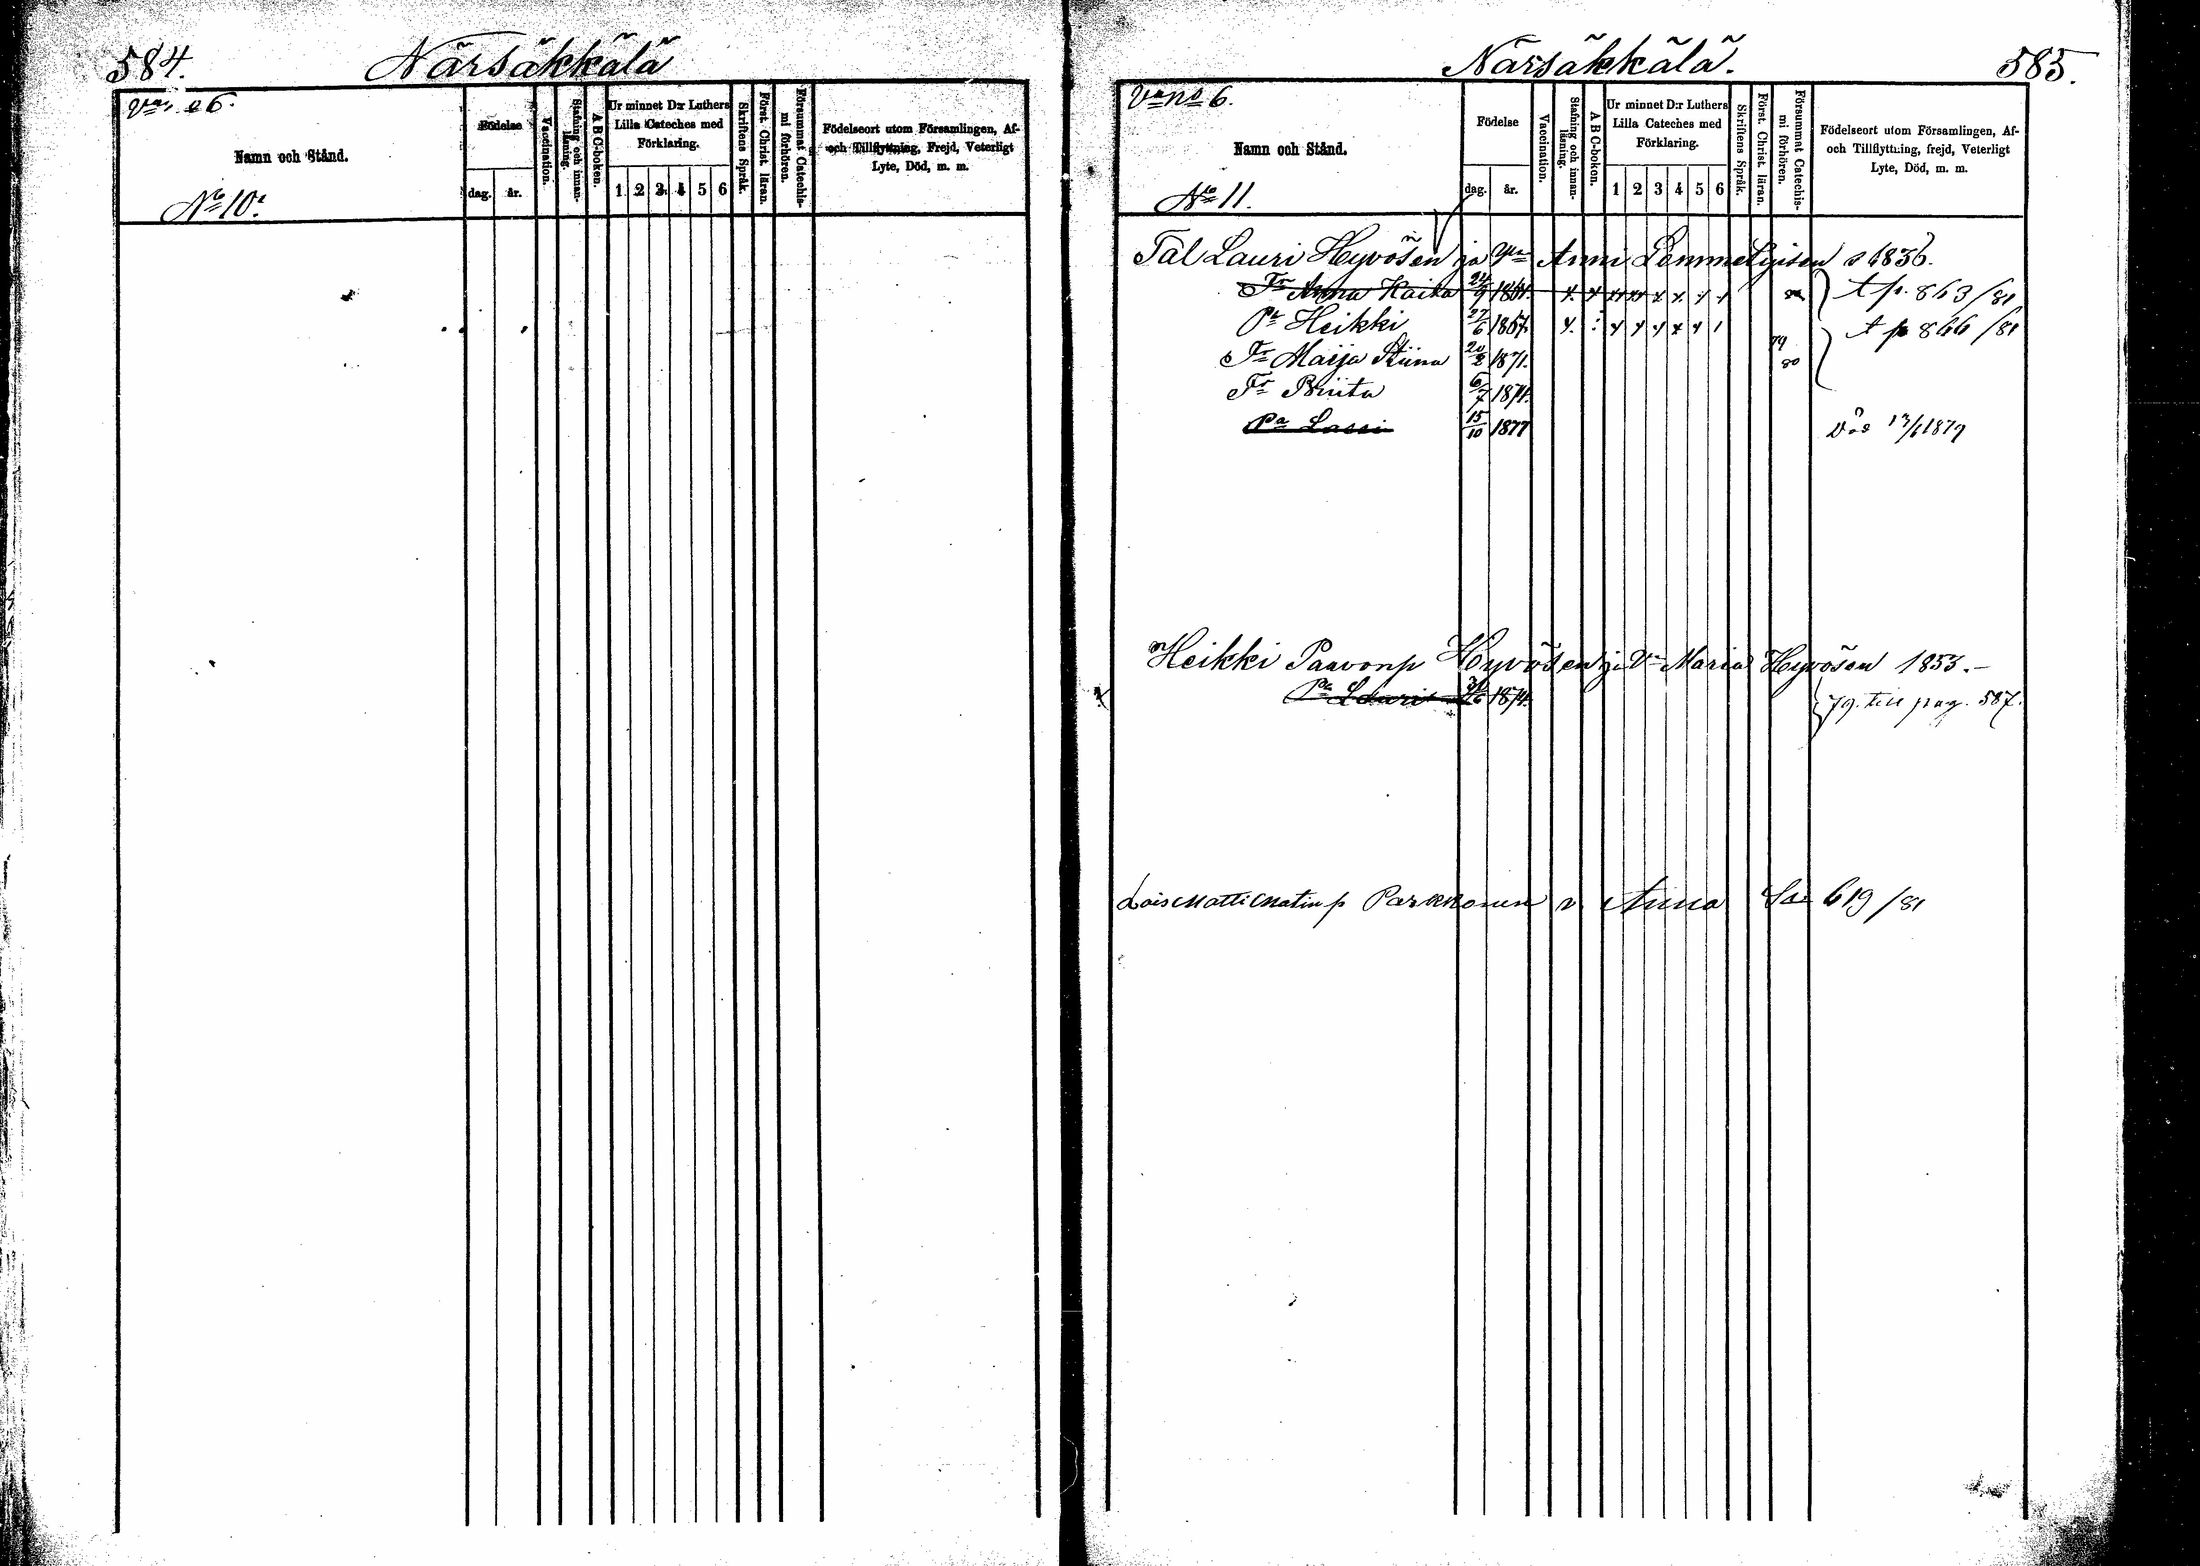 584. Närsäkkälä
6.
Namn och Stånd.
No 10.
Födelse
dag. år.
Vaccination.
Stafning och innanläsning.
A B C-boken.
Ur minnet D:r Luthers
Lilla Cateches med
Förklaring.
1 2 3 4 5 6
Skriftens Språk.
Först. Christ. läran.
Försummat Catechismi förhören.
Födelseort utom Församlingen, Af-
och Tillflyttning, Frejd, Veterligt
Lyte, Död, m. m.
Närsäkkälä. 585.
Va no 6.
Namn och Stånd.
No 11.
Födelse
dag. år.
Vaccination.
Stafning och innanläsning.
A B C-boken.
Ur minnet D:r Luthers
Lilla Cateches med
Förklaring.
1 2 3 4 5 6
Skriftens Språk.
Först. Christ. läran.
Försummat Catechismi förhören.
Födelseort utom Församlingen, Af-
och Tillflyttning, frejd, Veterligt
Lyte, Död, m. m.
Tal Lauri Hyvösen ja Anni s 1836.
Tr Anna Kaisa 24/9 1861. t p. 863/81
Pa Heikki 27/6 1867. t p 866/81
Tr Maija Stiina 20/8 1871. 79 80
Tr Briita 6/7 1874.
Pa Lassi 15/10 1877 1879
Heikki Paavonp Hyvösen ja Vo Maria Hyvösen 1853.-
Pa Lauri 1874. 79. till pag. 587.
Lois Matti Matinp Parkkonen v Anna 619/81